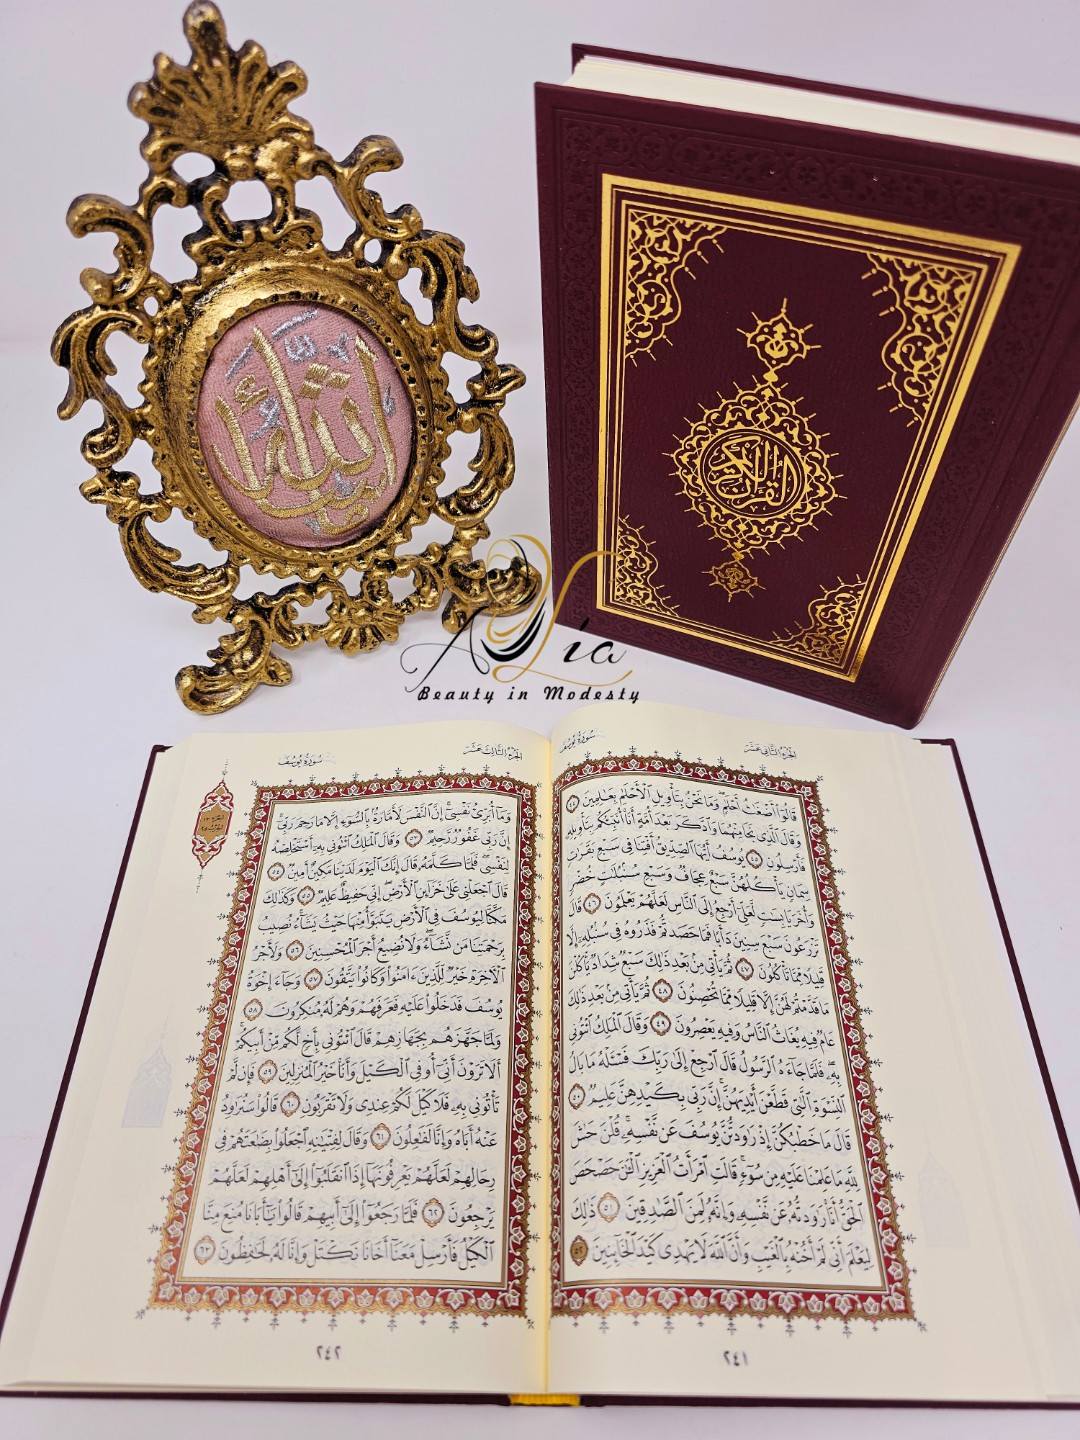 القرآن الكريم
Alia
Beauty in Modesty
سُورَةُ يُوسُفَ
الجُزْءُ الثَّانِي عَشَرَ
قَالُوٓاْ أَضْغَٰثُ أَحْلَٰمٖ وَمَا نَحْنُ بِتَأْوِيلِ ٱلْأَحْلَٰمِ بِعَٰلِمِينَ ٤٤
وَقَالَ ٱلَّذِي نَجَا مِنْهُمَا وَٱدَّكَرَ بَعْدَ أُمَّةٍ أَنَا۠ أُنَبِّئُكُم بِتَأْوِيلِهِۦ
فَأَرْسِلُونِ ٤٥ يُوسُفُ أَيُّهَا ٱلصِّدِّيقُ أَفْتِنَا فِي سَبْعِ بَقَرَٰتٖ
سِمَانٖ يَأْكُلُهُنَّ سَبْعٌ عِجَافٞ وَسَبْعِ سُنۢبُلَٰتٍ خُضْرٖ
وَأُخَرَ يَابِسَٰتٖ لَّعَلِّيٓ أَرْجِعُ إِلَى ٱلنَّاسِ لَعَلَّهُمْ يَعْلَمُونَ ٤٦ قَالَ
تَزْرَعُونَ سَبْعَ سِنِينَ دَأَبٗا فَمَا حَصَدتُّمْ فَذَرُوهُ فِي سُنۢبُلِهِۦٓ إِلَّا
قَلِيلٗا مِّمَّا تَأْكُلُونَ ٤٧ ثُمَّ يَأْتِي مِنۢ بَعْدِ ذَٰلِكَ سَبْعٞ شِدَادٞ يَأْكُلْنَ
مَا قَدَّمْتُمْ لَهُنَّ إِلَّا قَلِيلٗا مِّمَّا تُحْصِنُونَ ٤٨ ثُمَّ يَأْتِي مِنۢ بَعْدِ ذَٰلِكَ
عَامٞ فِيهِ يُغَاثُ ٱلنَّاسُ وَفِيهِ يَعْصِرُونَ ٤٩ وَقَالَ ٱلْمَلِكُ ٱئْتُونِي
بِهِۦۖ فَلَمَّا جَآءَهُ ٱلرَّسُولُ قَالَ ٱرْجِعْ إِلَىٰ رَبِّكَ فَسْـَٔلْهُ مَا بَالُ
ٱلنِّسْوَةِ ٱلَّٰتِي قَطَّعْنَ أَيْدِيَهُنَّۚ إِنَّ رَبِّي بِكَيْدِهِنَّ عَلِيمٞ ٥٠
قَالَ مَا خَطْبُكُنَّ إِذْ رَٰوَدتُّنَّ يُوسُفَ عَن نَّفْسِهِۦۚ قُلْنَ حَٰشَ
لِلَّهِ مَا عَلِمْنَا عَلَيْهِ مِن سُوٓءٖۚ قَالَتِ ٱمْرَأَتُ ٱلْعَزِيزِ ٱلْـَٰٔنَ حَصْحَصَ
ٱلْحَقُّ أَنَا۠ رَٰوَدتُّهُۥ عَن نَّفْسِهِۦ وَإِنَّهُۥ لَمِنَ ٱلصَّٰدِقِينَ ٥١ ذَٰلِكَ
لِيَعْلَمَ أَنِّي لَمْ أَخُنْهُ بِٱلْغَيْبِ وَأَنَّ ٱللَّهَ لَا يَهْدِي كَيْدَ ٱلْخَآئِنِينَ ٥٢
٢٤١
الجُزْءُ الثَّالِثَ عَشَرَ
سُورَةُ يُوسُفَ
وَمَآ أُبَرِّئُ نَفْسِيٓۚ إِنَّ ٱلنَّفْسَ لَأَمَّارَةُۢ بِٱلسُّوٓءِ إِلَّا مَا رَحِمَ رَبِّيٓۚ
إِنَّ رَبِّي غَفُورٞ رَّحِيمٞ ٥٣ وَقَالَ ٱلْمَلِكُ ٱئْتُونِي بِهِۦٓ أَسْتَخْلِصْهُ
لِنَفْسِيۖ فَلَمَّا كَلَّمَهُۥ قَالَ إِنَّكَ ٱلْيَوْمَ لَدَيْنَا مَكِينٌ أَمِينٞ ٥٤
قَالَ ٱجْعَلْنِي عَلَىٰ خَزَآئِنِ ٱلْأَرْضِۖ إِنِّي حَفِيظٌ عَلِيمٞ ٥٥ وَكَذَٰلِكَ
مَكَّنَّا لِيُوسُفَ فِي ٱلْأَرْضِ يَتَبَوَّأُ مِنْهَا حَيْثُ يَشَآءُۚ نُصِيبُ
بِرَحْمَتِنَا مَن نَّشَآءُۖ وَلَا نُضِيعُ أَجْرَ ٱلْمُحْسِنِينَ ٥٦ وَلَأَجْرُ
ٱلْأٓخِرَةِ خَيْرٞ لِّلَّذِينَ ءَامَنُواْ وَكَانُواْ يَتَّقُونَ ٥٧ وَجَآءَ إِخْوَةُ
يُوسُفَ فَدَخَلُواْ عَلَيْهِ فَعَرَفَهُمْ وَهُمْ لَهُۥ مُنكِرُونَ ٥٨
وَلَمَّا جَهَّزَهُم بِجَهَازِهِمْ قَالَ ٱئْتُونِي بِأَخٖ لَّكُم مِّنْ أَبِيكُمْۚ
أَلَا تَرَوْنَ أَنِّيٓ أُوفِي ٱلْكَيْلَ وَأَنَا۠ خَيْرُ ٱلْمُنزِلِينَ ٥٩ فَإِن لَّمْ
تَأْتُونِي بِهِۦ فَلَا كَيْلَ لَكُمْ عِندِي وَلَا تَقْرَبُونِ ٦٠ قَالُواْ سَنُرَٰوِدُ
عَنْهُ أَبَاهُ وَإِنَّا لَفَٰعِلُونَ ٦١ وَقَالَ لِفِتْيَٰنِهِ ٱجْعَلُواْ بِضَٰعَتَهُمْ فِي
رِحَالِهِمْ لَعَلَّهُمْ يَعْرِفُونَهَآ إِذَا ٱنقَلَبُوٓاْ إِلَىٰٓ أَهْلِهِمْ لَعَلَّهُمْ
يَرْجِعُونَ ٦٢ فَلَمَّا رَجَعُوٓاْ إِلَىٰٓ أَبِيهِمْ قَالُواْ يَٰٓأَبَانَا مُنِعَ مِنَّا
ٱلْكَيْلُ فَأَرْسِلْ مَعَنَآ أَخَانَا نَكْتَلْ وَإِنَّا لَهُۥ لَحَٰفِظُونَ ٦٣
٢٤٢